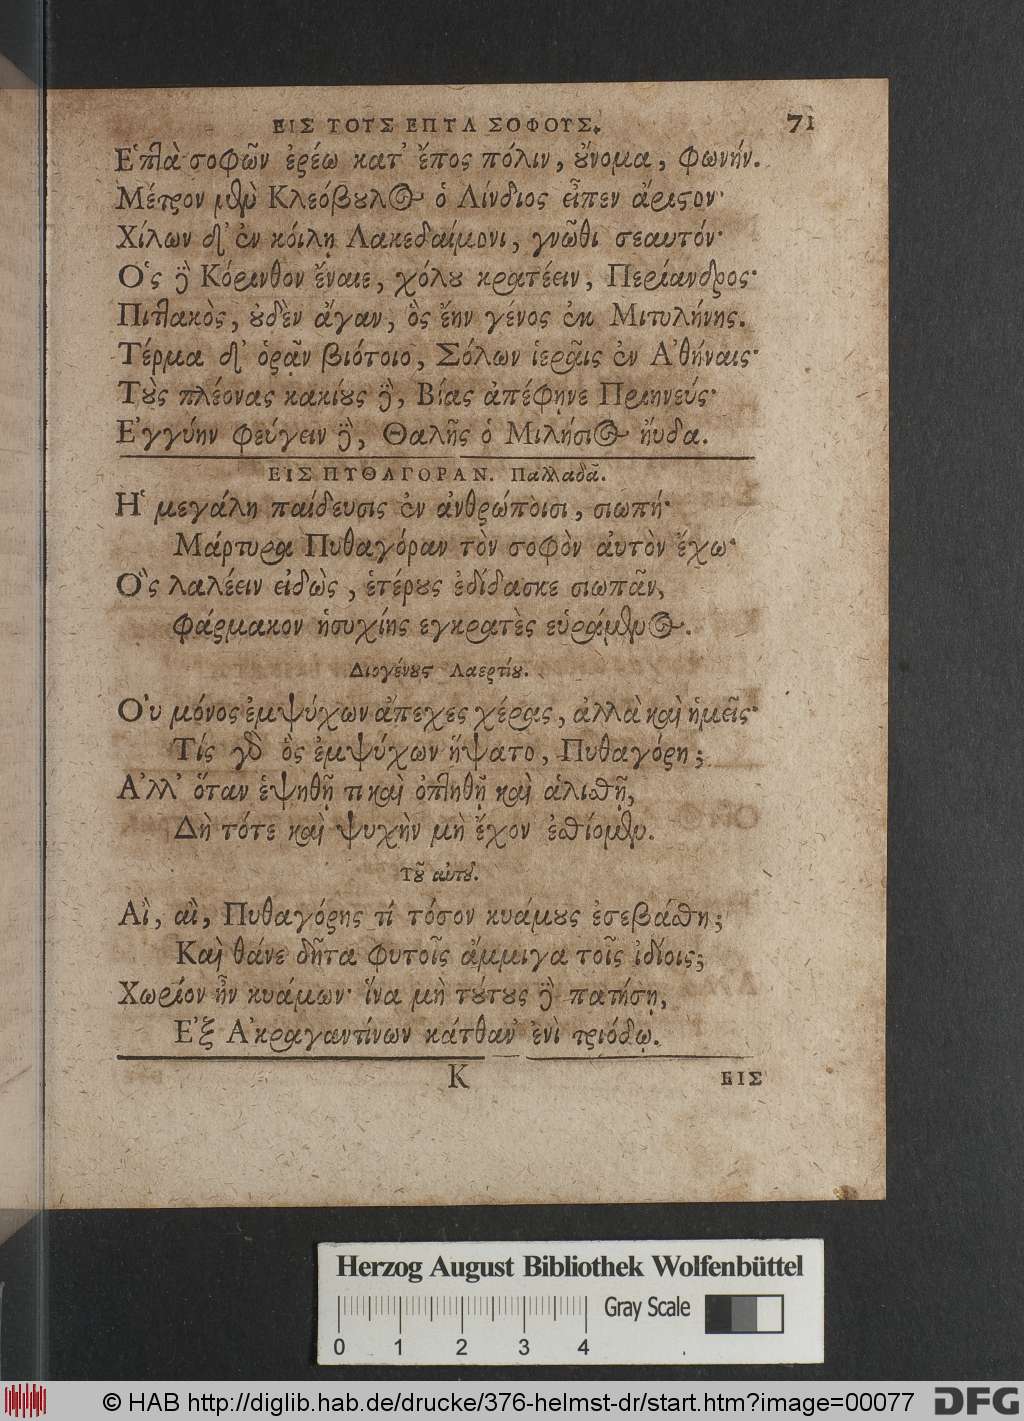 ΕΙΣ ΤΟΥΣ ΕΠΤΑ ΣΟΦΟΥΣ. 71
Ἑπτὰ σοφῶν ἐρέω κατ' ἔπος πόλιν, οὔνομα, φωνήν.
Μέτρον μὲν Κλεόβουλος ὁ Λίνδιος εἶπεν ἄριστον·
Χίλων δ' ἐν κόιλῃ Λακεδαίμονι, γνῶθι σεαυτόν·
Ὅς δὲ Κόρινθον ἔναιε, χόλου κρατέειν, Περίανδρος·
Πιττακὸς, οὐδὲν ἄγαν, ὃς ἔην γένος ἐκ Μιτυλήνης.
Τέρμα δ' ὁρᾷν βιότοιο, Σόλων ἱεραῖς ἐν Ἀθήναις·
Τοὺς πλέονας κακίους δὲ, Βίας ἀπέφηνε Πριηνεύς·
Ἐγγύην φεύγειν δὲ, Θαλῆς ὁ Μιλήσιος ἤυδα.
ΕΙΣ ΠΥΘΑΓΟΡΑΝ. Παλλαδᾶ.
Ἡ μεγάλη παίδευσις ἐν ἀνθρώποισι, σιωπή·
Μάρτυρα Πυθαγόραν τὸν σοφὸν αὐτὸν ἔχω·
Ὃς λαλέειν εἰδὼς, ἑτέρους ἐδίδασκε σιωπᾶν,
φάρμακον ἡσυχίης εγκρατὲς εὑράμενος.
Διογένους Λαερτίου.
Ὀυ μόνος ἐμψύχων ἄπεχες χέρας, ἀλλὰ καὶ ἡμεῖς·
Τίς γὰρ ὃς ἐμψύχων ἥψατο, Πυθαγόρη;
Ἀλλ' ὅταν ἑψηθῇ τι καὶ ὀπτηθῇ καὶ ἁλισθῇ,
Δὴ τότε καὶ ψυχὴν μὴ ἔχον ἐσθίομεν.
Τοῦ αὐτοῦ.
Αἲ, αἲ, Πυθαγόρης τί τόσον κυάμους ἐσεβάσθη;
Καὶ θάνε δῆτα φυτοῖς ἄμμιγα τοῖς ἰδίοις;
Χωρίον ἦν κυάμων· ἵνα μὴ τούτους δὲ πατήσῃ,
Ἐξ Ἀκραγαντίνων κάτθαν' ἐνὶ τριόδῳ.
K ΕΙΣ
Herzog August Bibliothek Wolfenbüttel
Gray Scale
0 1 2 3 4
© HAB http://diglib.hab.de/drucke/376-helmst-dr/start.htm?image=00077 DFG